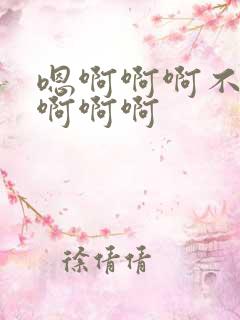 嗯啊啊啊不
啊啊啊
徐倩倩